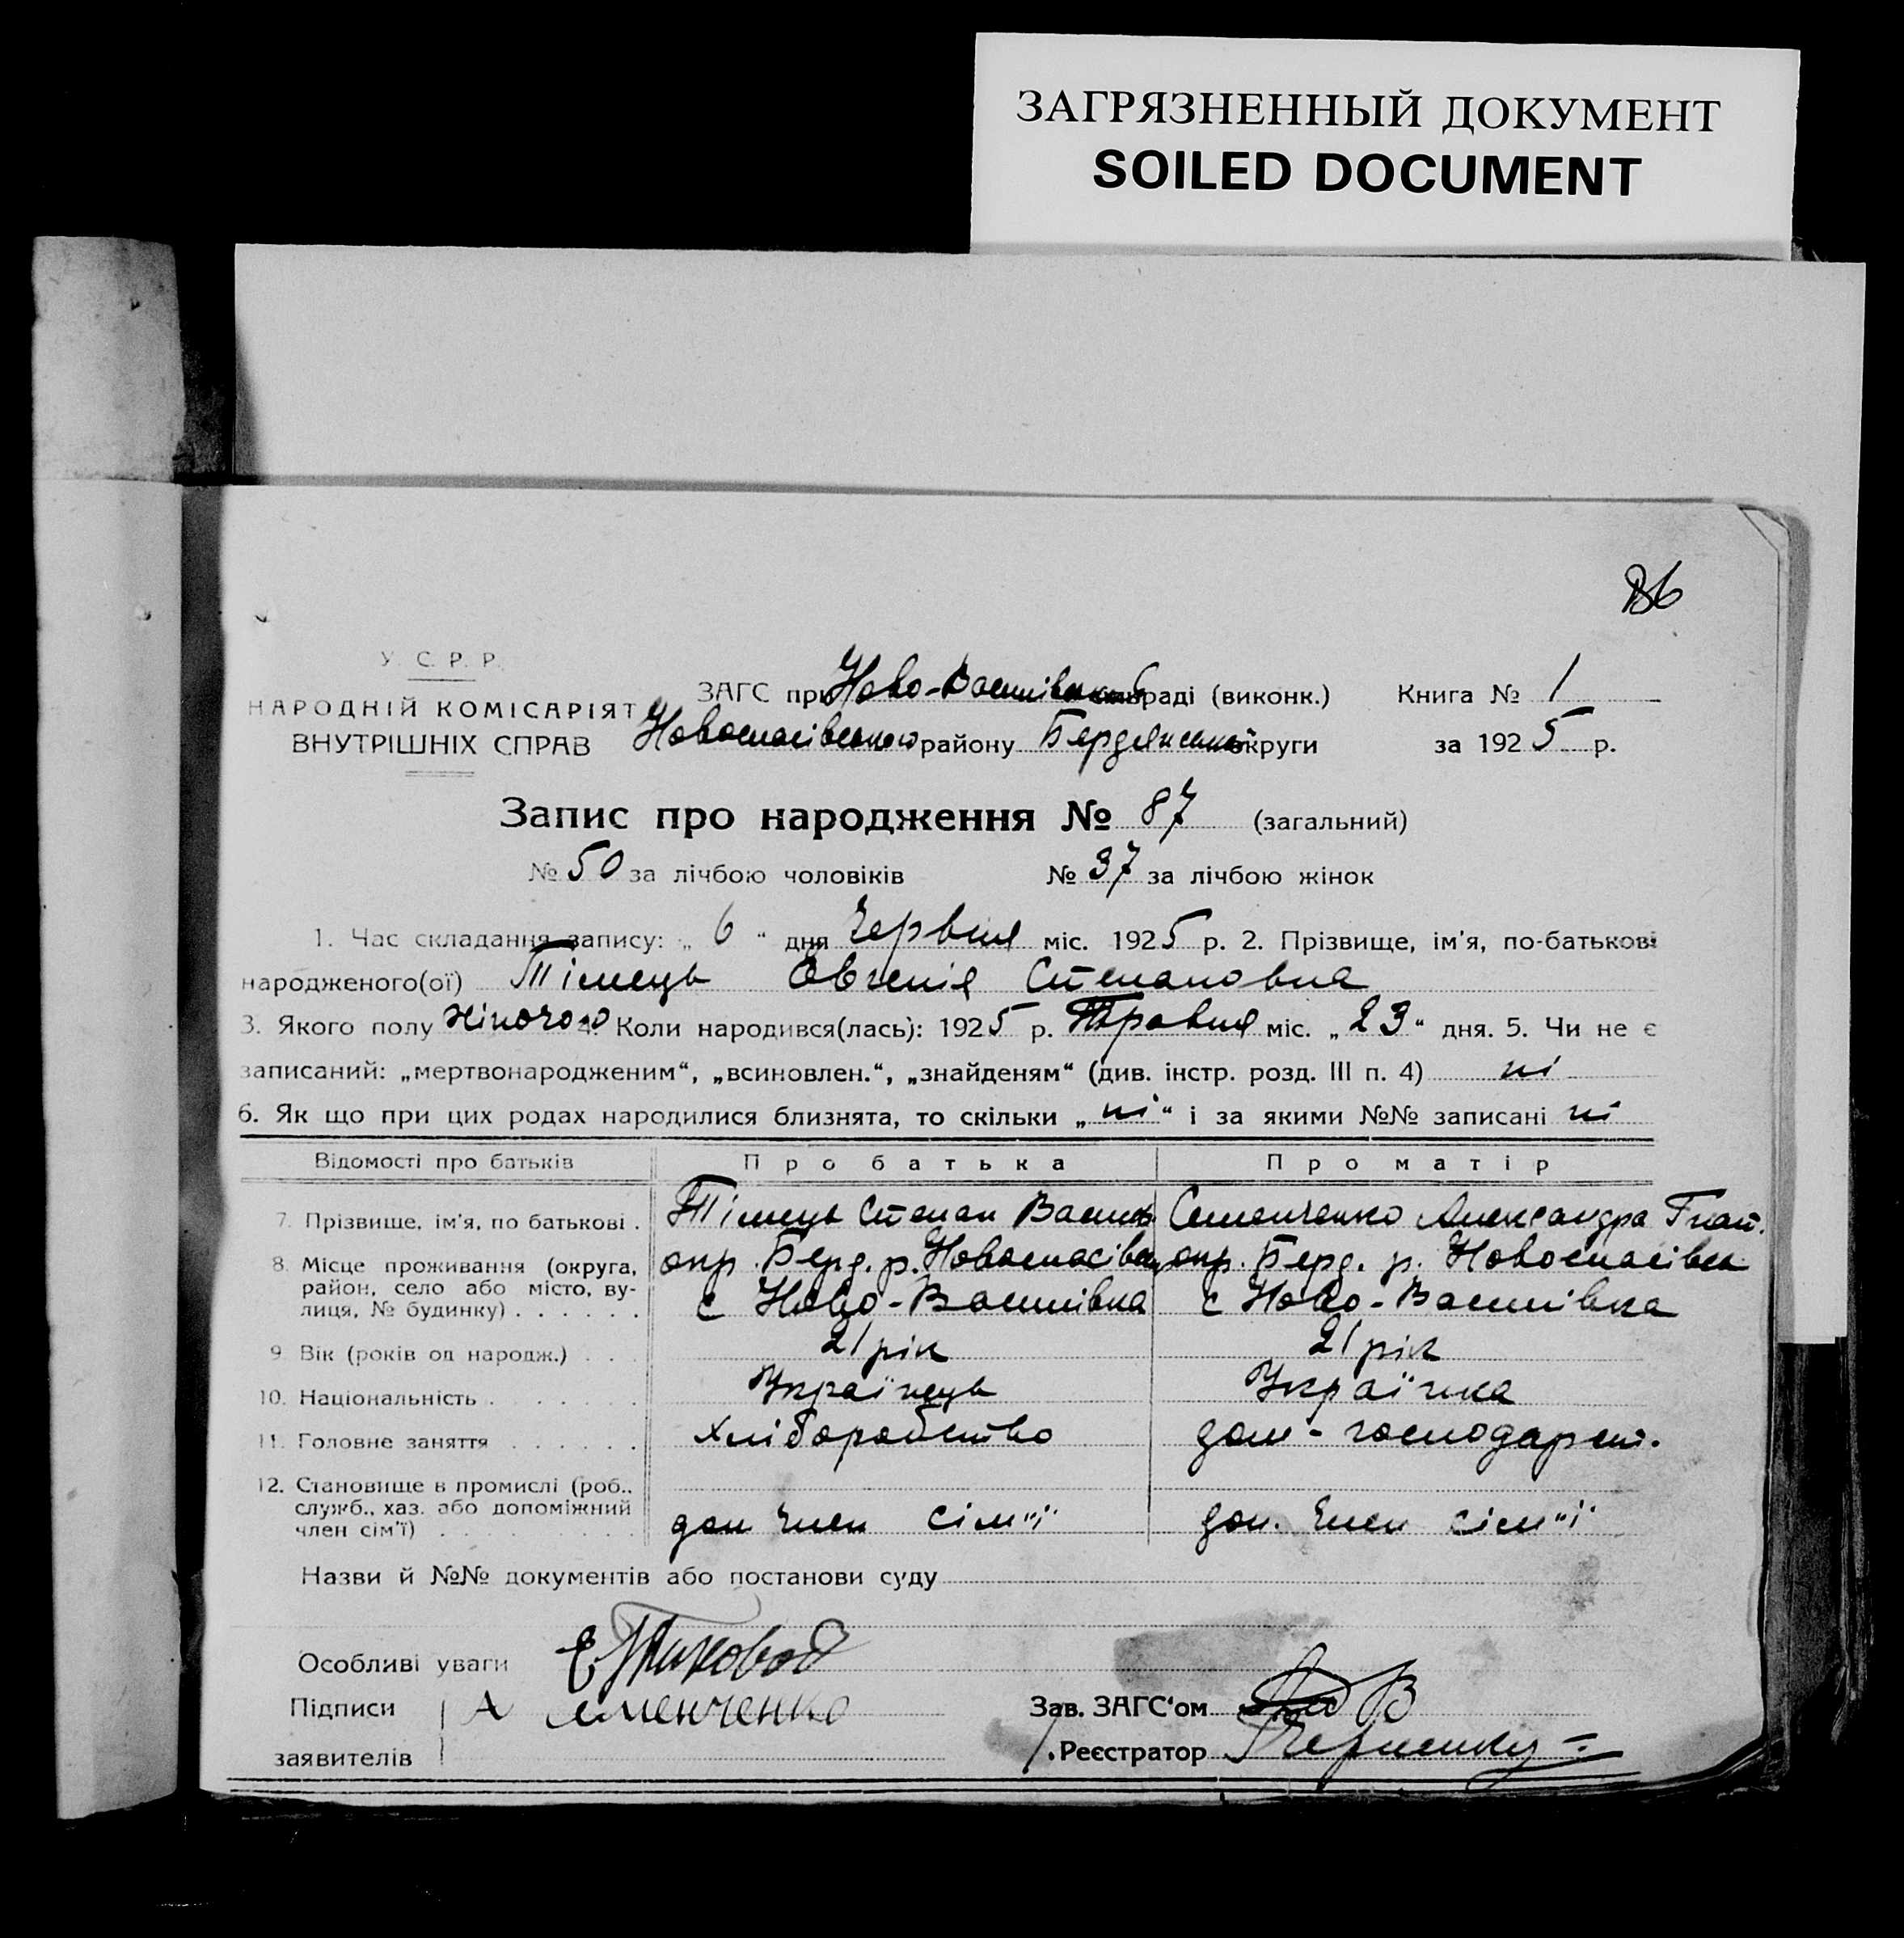 ЗАГРЯЗНЕННЫЙ ДОКУМЕНТ
SOILED DOCUMENT
86
У. С. Р. Р.
НАРОДНІЙ КОМІСАРІЯТ
ВНУТРІШНІХ СПРАВ
ЗАГС при Ново-Василівськ раді (виконк.) Книга № 1
Новоспасівського району Бердянської округи за 1925 р.
Запис про народження № 87 (загальний)
№ 50 за лічбою чоловіків № 37 за лічбою жінок
1. Час складання запису: „ 6 “ дня Червня міс. 1925 р. 2. Прізвище, ім'я, по-батькові
народженого(ої) Тімець Овгенія Степановна
3. Якого полу жіночого 4. Коли народився(лась): 1925 р. Травня міс. „ 23 “ дня. 5. Чи не є
записаний: „мертвонародженим“, „всиновлен.“, „знайденям“ (див. інстр. розд. III п. 4) ні
6. Як що при цих родах народилися близнята, то скільки „ ні “ і за якими №№ записані ні
Відомості про батьків Про батька Про матір
7. Прізвище, ім'я, по батькові . Тімець Степан Васильв. Семенченко Александра Гнат.
8. Місце проживання (округа, район, село або місто, вулиця, № будинку) . . . . . . окр. Берд. р. Новоспасівськ окр. Берд. р. Новоспасівськ
с Ново-Василівка с Ново-Василівка
9. Вік (років од народж.) . . . 21 рік 21 рік
10. Національність . . . . . . Українець Українка
11. Головне заняття . . . . . . хліборобство дом-господарст.
12. Становище в промислі (роб., служб., хаз. або допоміжний член сім'ї) . . . . . . доп член сім"ї доп. член сім"ї
Назви й №№ документів або постанови суду
Особливі уваги
Підписи А менченко Зав. ЗАГС'ом
заявителів Реєстратор